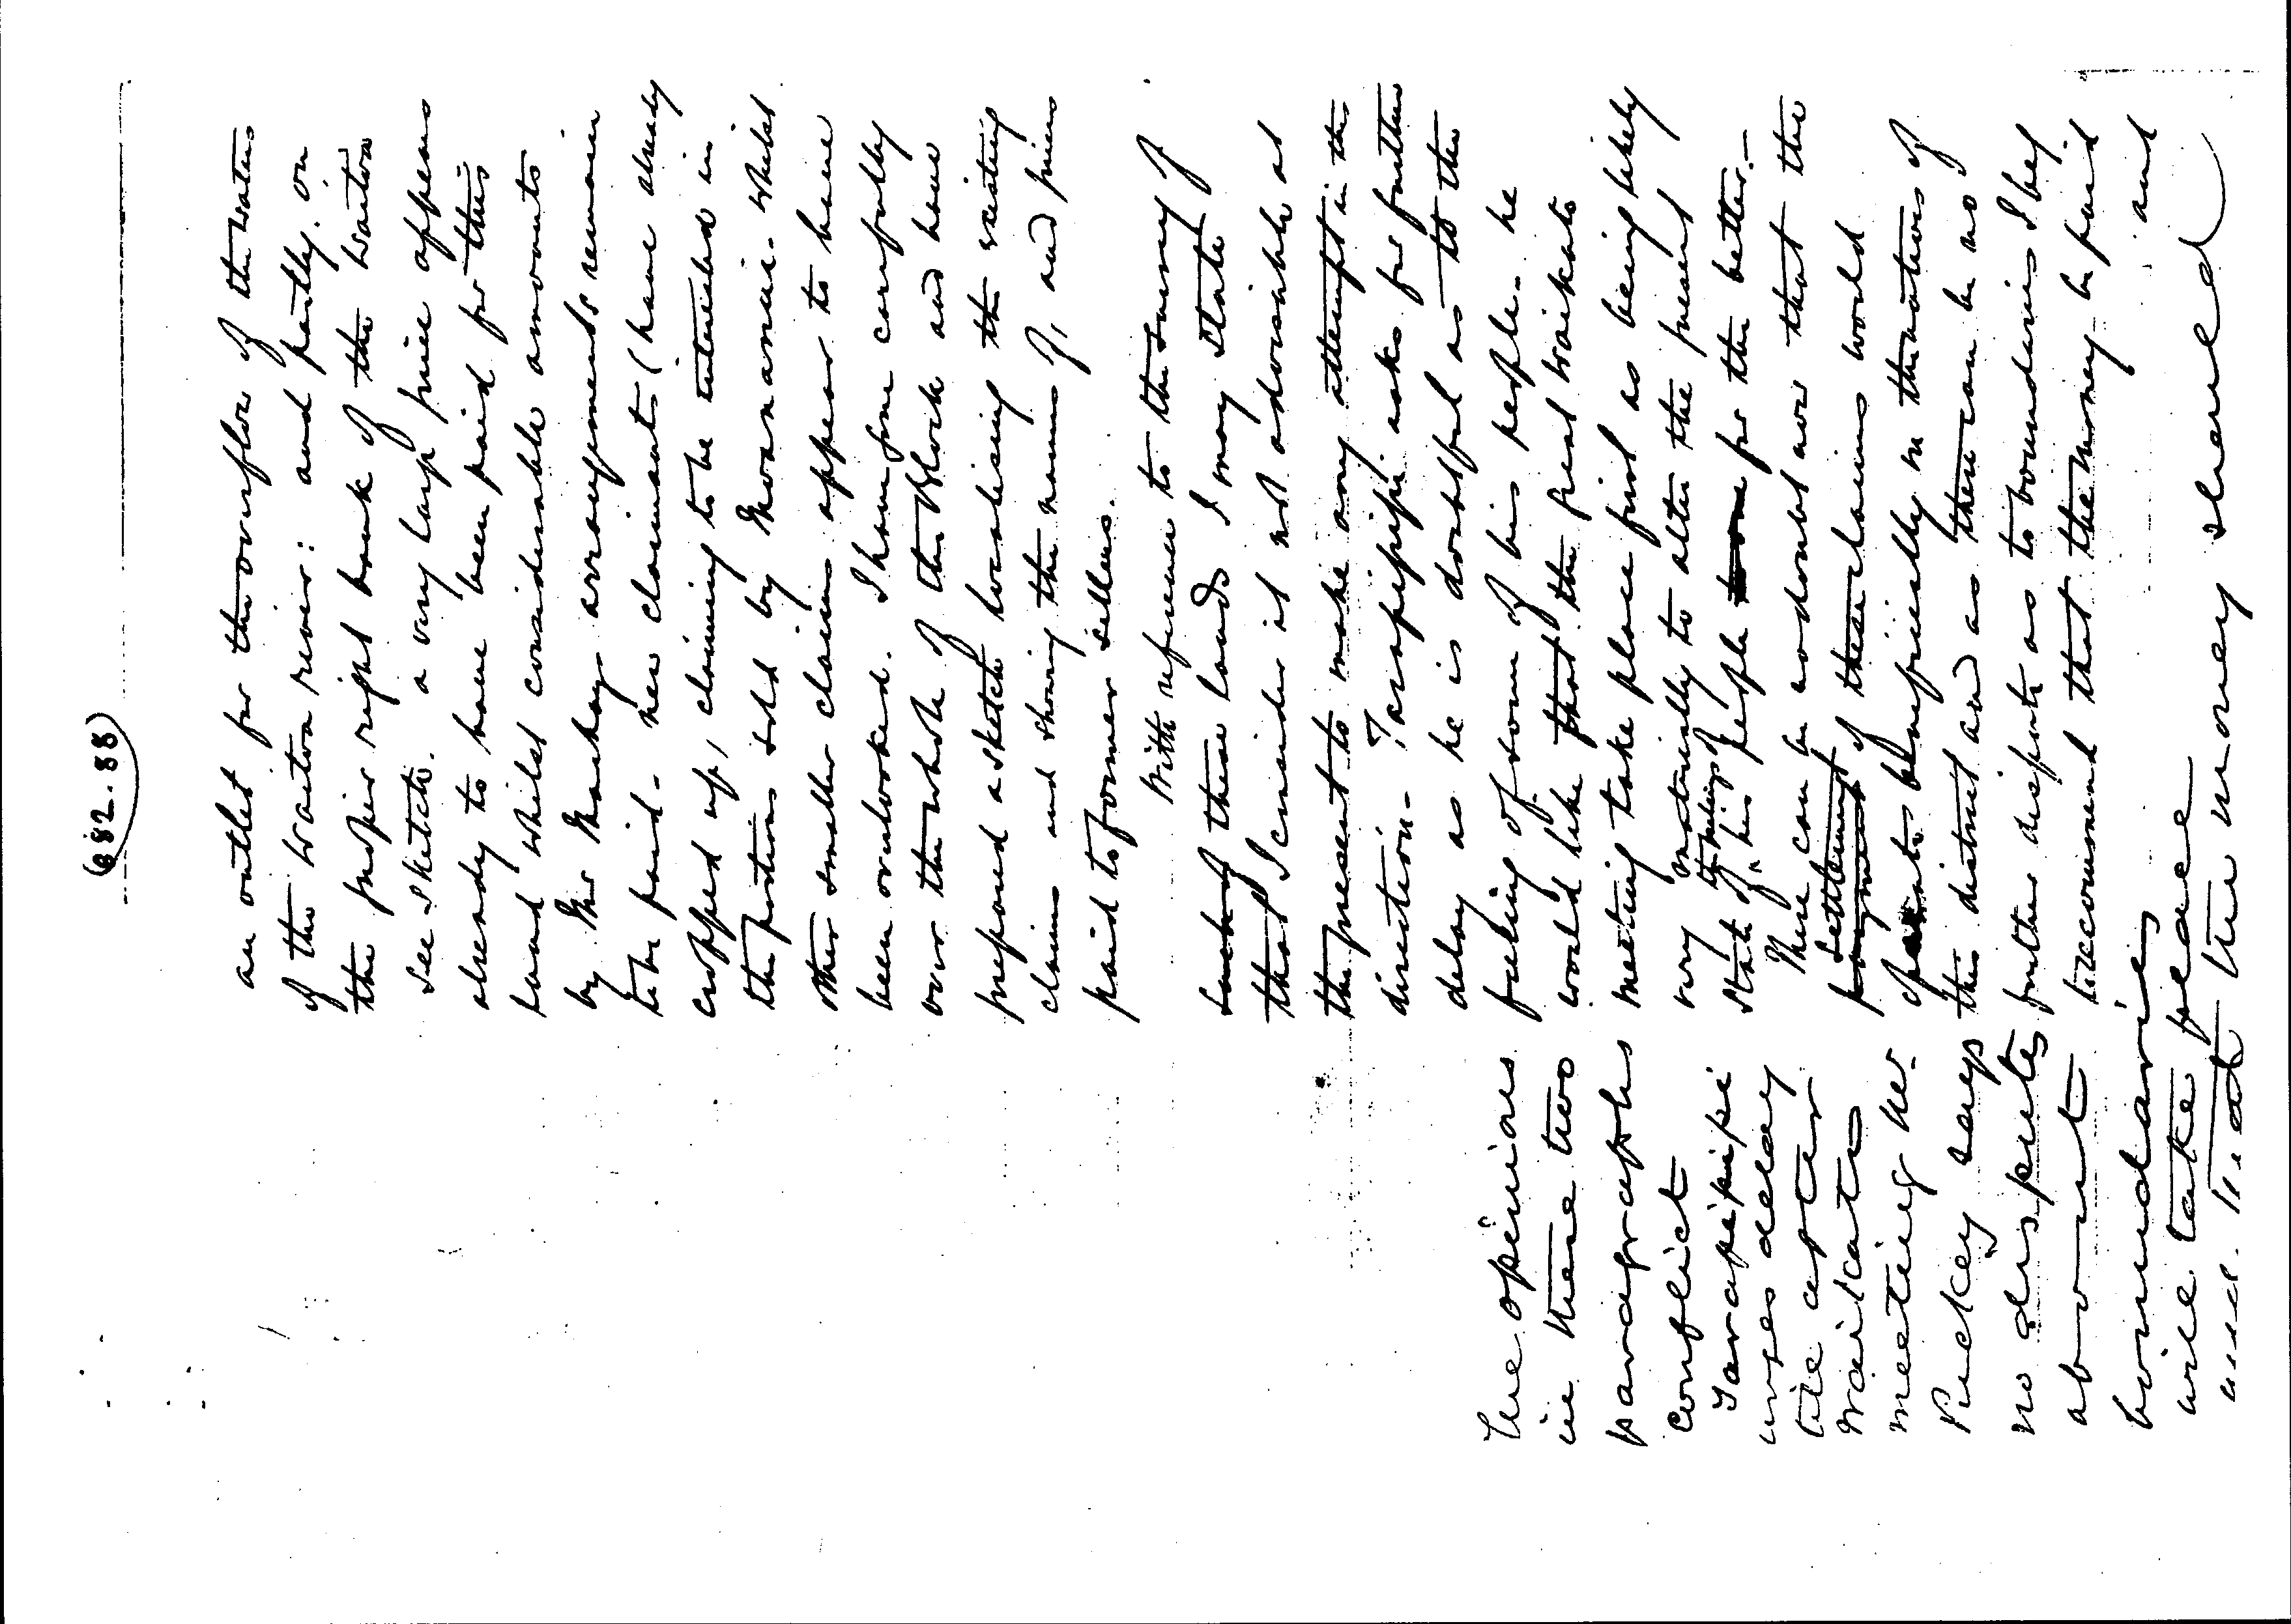 682.88
an outlet for the overflow of the waters
of the Waitoa river: and partly on
the proper right bank of the Waitoa
see sketch. a very large price appears
already to have been paid for this
land whilst considerable amounts
by Mr Mackay's arrangements remain
to be paid - new claimants (have already
cropped up, claiming to be interested in
the portions sold by - whilst
other smaller claims appear to have
been overlooked. I have gone carefully
over the whole of the Block and have
prepared a sketch localising the existing
claims and showing the names of, and prices
paid to former sellers.
With reference to the survey of
these lands I may state
that I consider it not advisable at
the present to make any attempt in this
direction - Tarapipipi asks for further
delay as he is doubtful as to the
feeling of some of his people - he
would like that the great Waikato
meeting take place first as being likely
very materially to alter the present
state of the feelings of his people for the better. -
There can be no doubt now that the
settlement of these claims would
operate beneficially on the natives of
this district and as there can be no
further dispute as to boundaries I beg
to recommend that the money be paid
and
The opinions
in these two
paragraphs
conflict
Tarapipipi
urges delay
till after
Waikato
meeting Mr
Puckey says
no disputes
about
boundaries
will take place
and that the money should